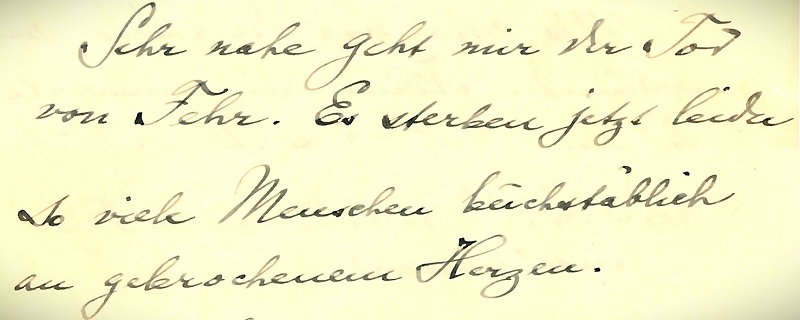 Sehr nahe geht mir der Tod
von Fehr. Es sterben jetzt leider
so viele Menschen buchstäblich
an gebrochenem Herzen.